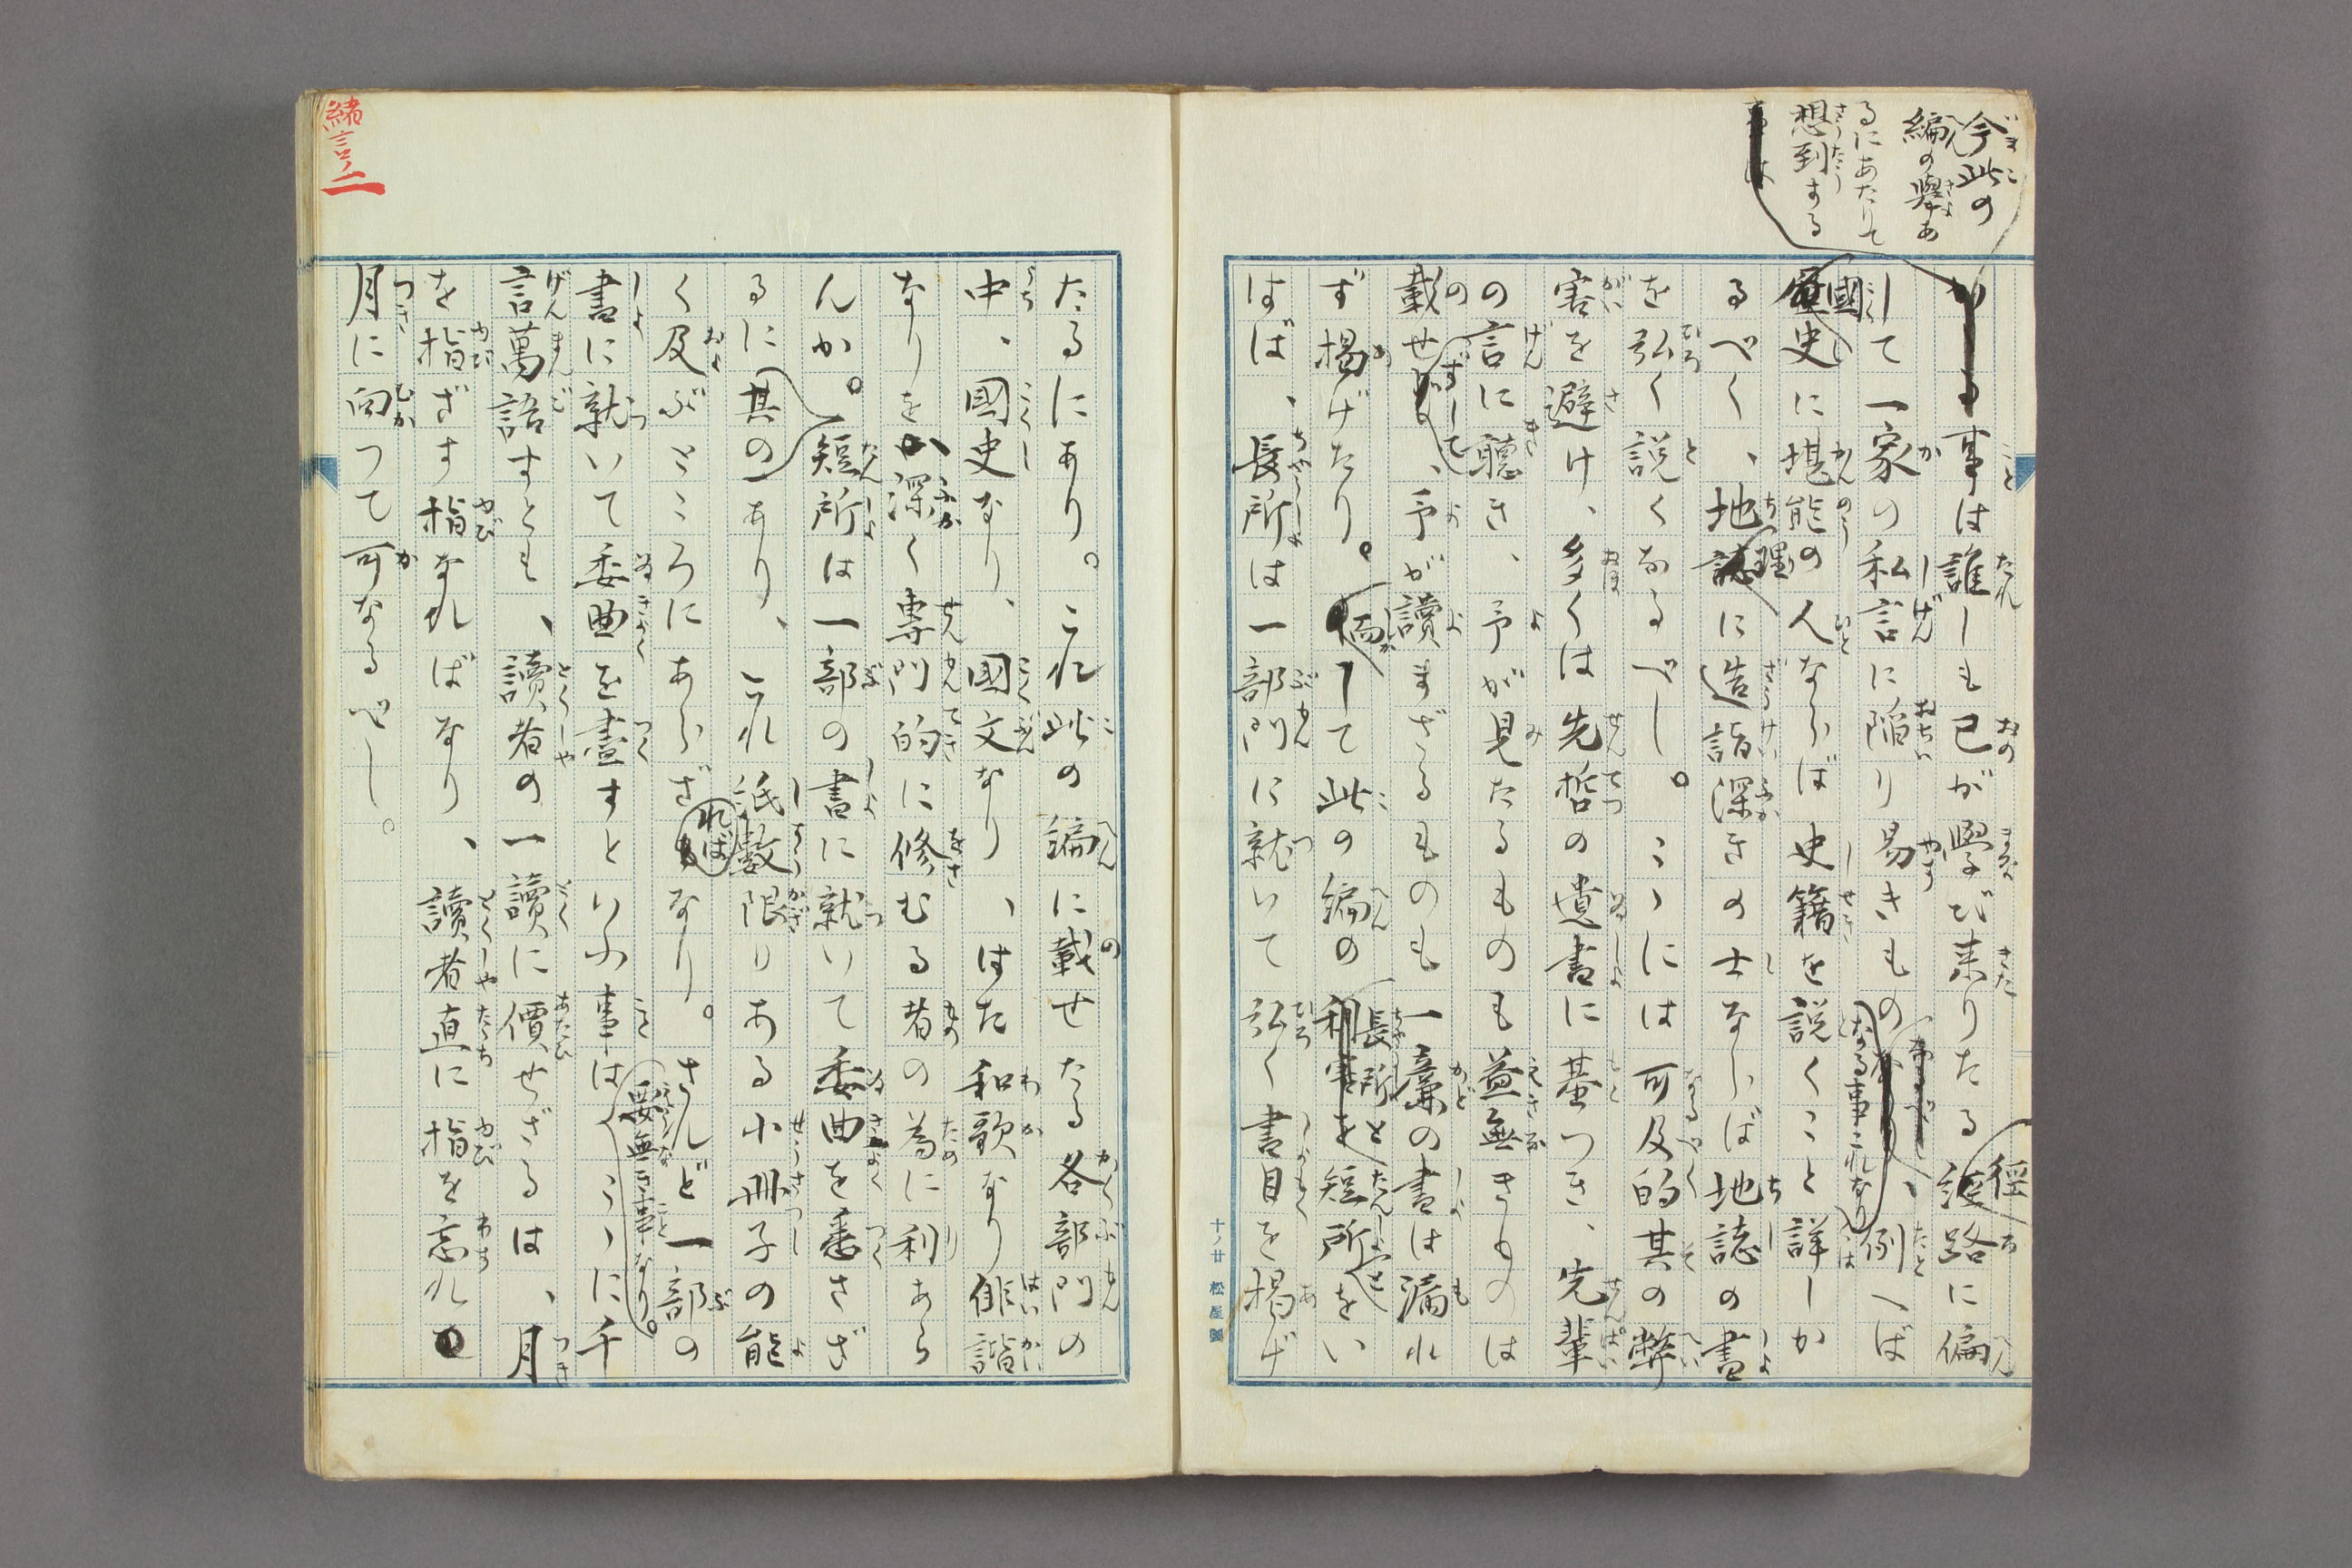 今此の
編の擧あ
るにあたりて
想到する
事は誰しも已が學び來りたる徑路に偏
して一家の私言に陷り易きもの因る事これなり、例へば
國史に堪能の人ならば史籍を説くこと詳しか
るべく、地理に造詣深きの士ならば地誌の書
を弘く説くなるべし。こゝには可及的其の弊
害を避け、多くは先哲の遺書に基つき、先輩
の言に聽き、予が見たるものも益無きものは
載せずして、予が讀まざるものも一廉の書は漏れ
ず揭げたり。而して此の編の長所と短所とをい
はば、長所は一部門に就いて弘く書目を揭げ
十ノ廿 松屋製
たるにあり。これ此の編に載せたる各部門の
中、國史なり、國文なり、はた和歌なり俳諧
なりを深く專門的に修むる者の為に利あら
んか。短所は一部の書に就いて委曲を悉さざ
るに其の一あり、これ紙數限りある小冊子の能
く及ぶところにあらざればなり。されど一部の
書に就いて委曲を盡すといふ事は要無き事なり。こゝに千
言萬語すとも、讀者の一讀に價せざるは、月
を指ざす指なればなり、讀者直に指を忘れ
月に向つて可なるべし。
緒言ノ二